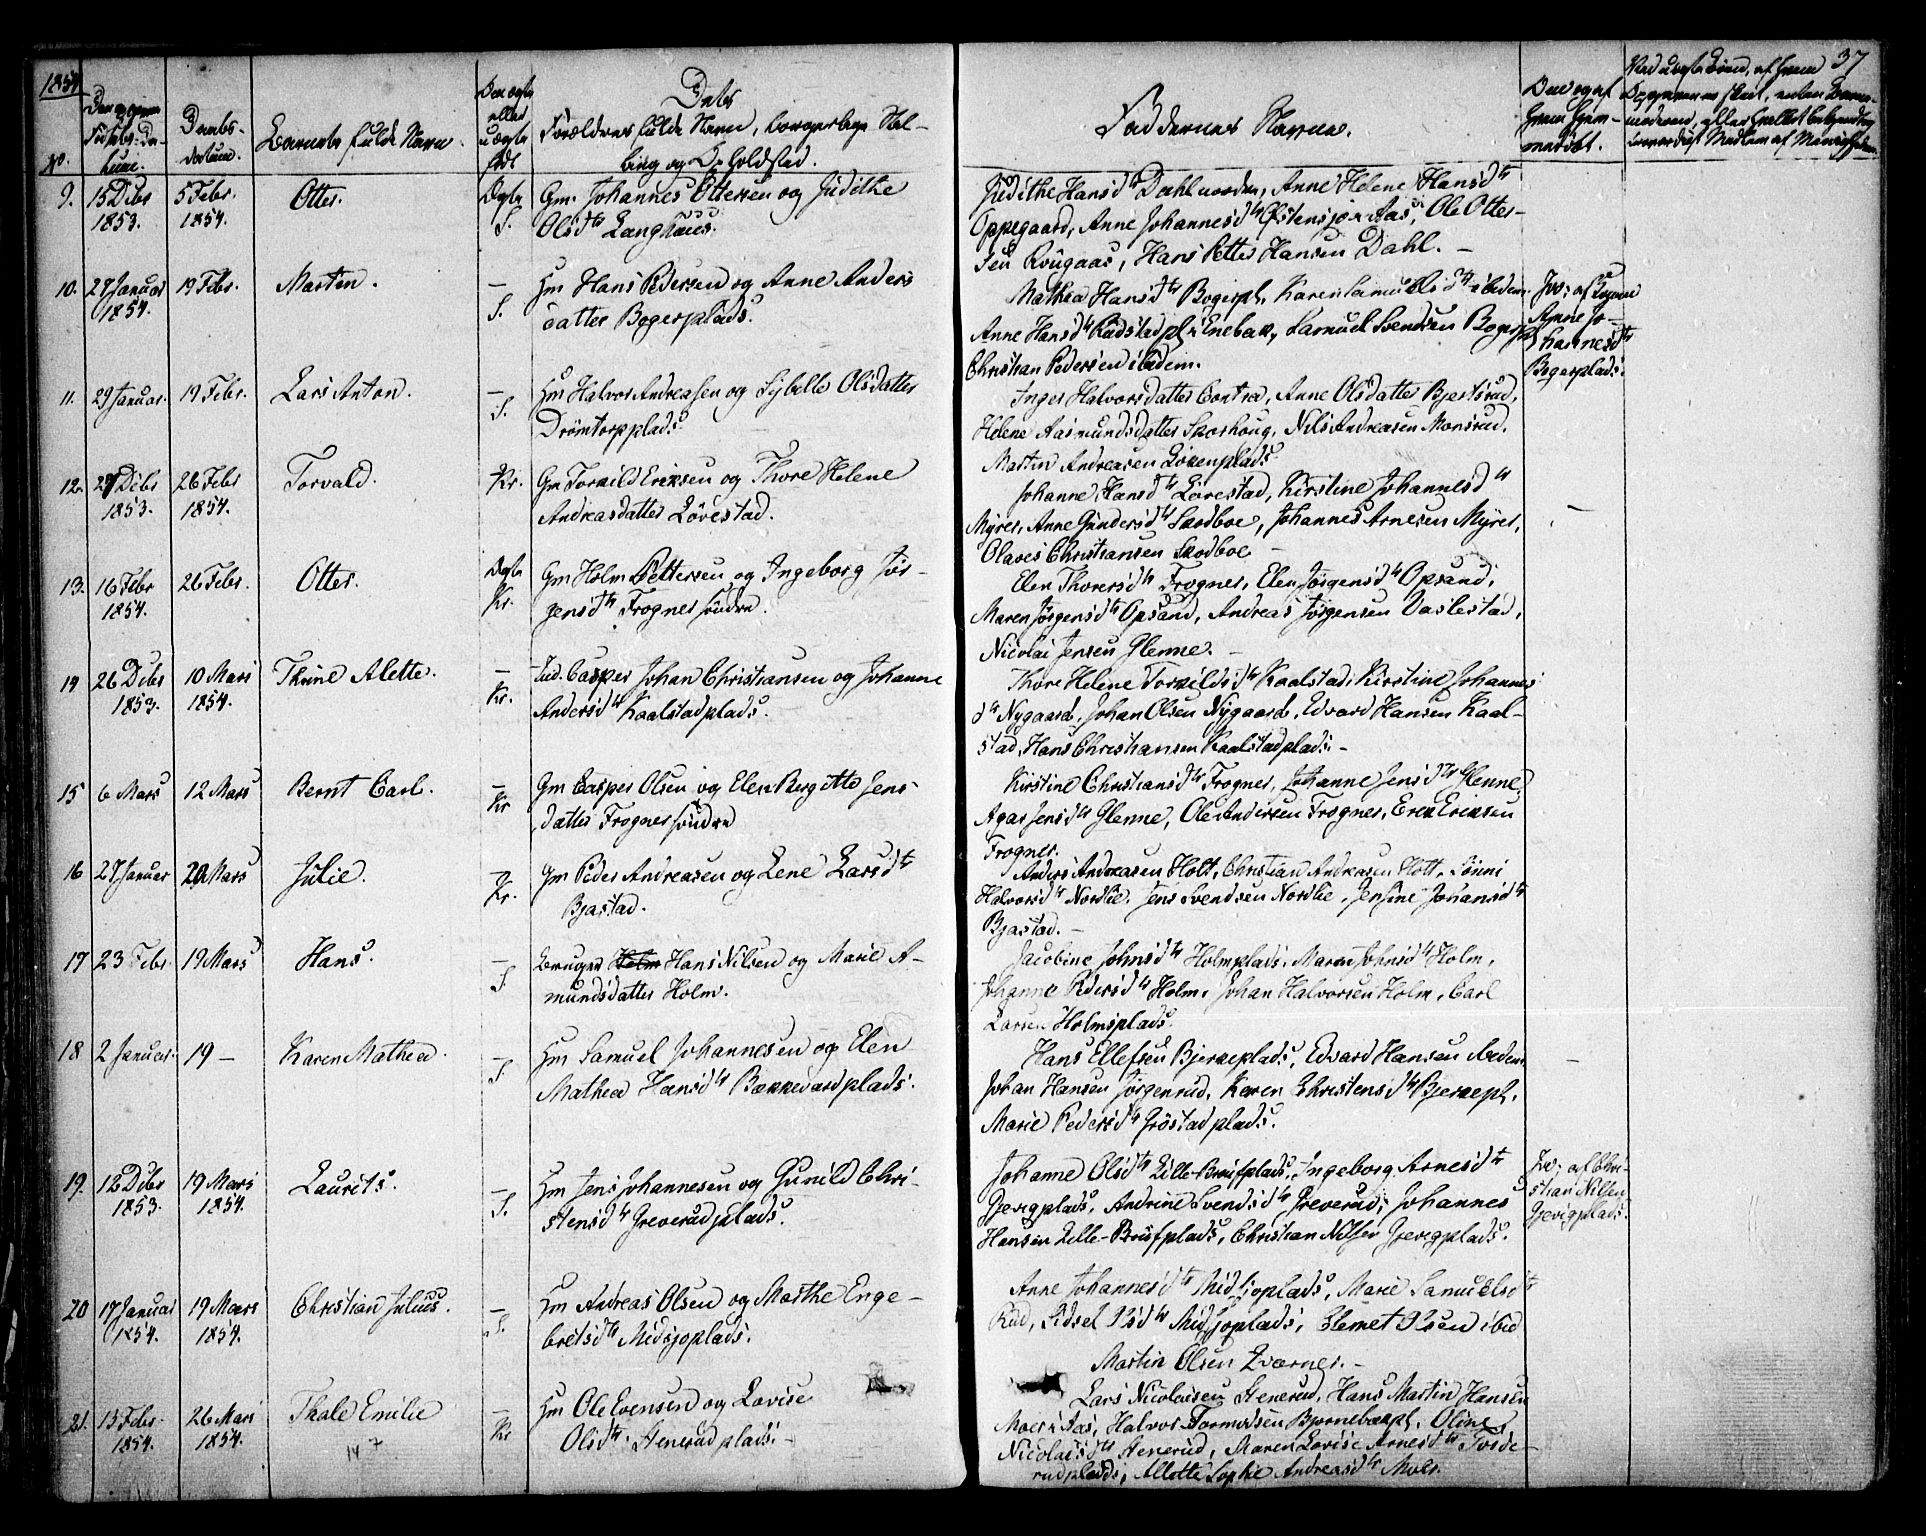 1854
37
No.
Barnets fulde Navn.
Faddernes Navne.
9. 15 Dcbr 5 Febr. Otter. Ægte Gm. Johannes Ottersen og Judithe
1853. 1854. S. Olsdtr Langhuus.
Judithe Hansdtr Dahl nordre, Anne Helene Hansdtr
Oppegaard, Anne Johannesdtr Østensjø i Aas, Ole Otter-
sen Rougaas, Hans Petter Hansen Dahl. –
10. 27 Januar 19 Febr. Morten. – Hm Hans Pedersen og Anne Anders
1854. S. datter Bogerplads.
Mathea Hansdtr Bogerpl. Karen Samuelsdtr ibidem.
Anne Hansdtr Rudstadpl. i Enebak, Samuel Svendsen Bogerpl
Christian Pedersen ibidem.
Anne Jo-
hannesdtr
Bogerplads.
11. 29 Januar. 19 Febr. Lars Anton. – Hm Halvor Andreasen og Sybille Olsdatter
S. Drömtorpplads
Inger Halvorsdatter Contra, Anne Olsdatter Bjertsrud,
Helene Aasmundsdatter Skorhoug, Nils Andreasen Monsrud,
Martin Andreasen Lökenplads
12. 27 Dcbr 26 Febr Torvald. Kr. Gm Torkild Eriksen og Thore Helene
1853. 1854. Andreasdatter Lövestad.
Johanne Hansdtr Lövestad, Kirstine Johannesdtr
Myrer, Anne Gundersdtr Skodboe, Johannes Arnesen Myrer,
Olaves Christiansen Skodboe –
13. 16 Febr 26 Febr. Otter. Ægte Gm Holm Pettersen og Ingeborg Jör-
1854. Kr. gensdtr Frogner söndre.
Elen Thorersdtr Frogner, Elen Jörgensdtr Opsand,
Maren Jörgensdtr Opsand, Andreas Jörgensen Vaslestad,
Nicolai Jensen Glenne. –
14 26 Dcbr 10 Mars Thrine Alette. – Ind. Casper Johan Christiansen og Johanne
1853. 1854. Kr. Andersdtr Kaalstadplads.
Thore Helene Torkildsdtr Kaalstad, Kirstine Johannes
dtr Nygaard, Johan Olsen Nygaard, Edvard Hansen Kaal-
stad, Hans Christiansen Kaalstadplads. –
15 6 Mars 12 Mars Bernt Carl. – Gm Casper Olsen og Elen Birgitte Jens
Kr datter Frogner söndre
Kirstine Christiansdtr Frogner, Johanne Jensdtr Glenne,
Agar Jensdtr Glenne, Ole Andersen Frogner, Erik Eriksen
Frogner.
16 27 Januar 20 Mars Julie. – Gm Peder Andreasen og Lene Larsdtr
Kr. Bjastad.
Anders Andreasen Holt, Christian Andreasen Holt, Lönni
Halvorsdtr Nordlie, Jens Svendsen Nordlie, Jensine Johansdtr
Bjastad. –
17 23 Febr. 19 Mars Hans. – Bruger Holm Hans Nilsen og Marie A-
S. mundsdatter Holm.
Jacobine Johnsdtr Holmplads, Maren Johnsdtr Holm,
Johanne Pedersdtr Holm, Johan Halvorsen Holm, Carl
Larsen Holmsplads.
18 2 Januar. 19 – Karen Mathea. – Hm Samuel Johannesen og Elen
S Mathea Hansdtr Bakkevardplads.
Hans Ellefsen Bjerkeplads, Edvard Hansen ibidem
Johan Hansen Jörgenrud, Karen Christensdtr Bjerkepl.
Marie Pedersdtr Gröstadplads.
19. 12 Dcbr 19 Mars Laurits. – Hm Jens Johannesen og Gunild Chri-
1853. 1854. S. stensdtr Greverudplads.
Johanne Olsdtr Lille-Breifplads, Ingeborg Arnesdtr
Gjevigplads, Andrine Svendsdtr Greverud, Johannes
Hansen Lille-Breifplads, Christian Nilsen Gjevigplads.
af Chri-
stian Nilsen
Gjevigplads.
20 17 Januar 19 Mars Christian Julius. – Hm Andreas Olsen og Marthe Enge-
1854. 1854. S. bretsdtr Midsjoplads.
Anne Johannesdtr Midsjoplads, Marie Samuelsdtr
Rud, Sidsel Olsdtr Midsjoplads, Klemet Olsen ibid
Martin Olsen Kværner. –
21. 13 Febr. 26 Mars Thale Emilie – Hm Ole Evensen og Lovise
1854. 1854. Kr Olsdtr Stenerudplads. –
Lars Nicolaisen Stenerud, Hans Martin Hansen
Moer i Aas, Halvor Tormodsen Bjørnebækpl, Oline
Nicolaisdtr Stenerud, Maren Lovise Arnesdtr Torde-
rudplads, Allette Sophie Andreasdtr Moer.